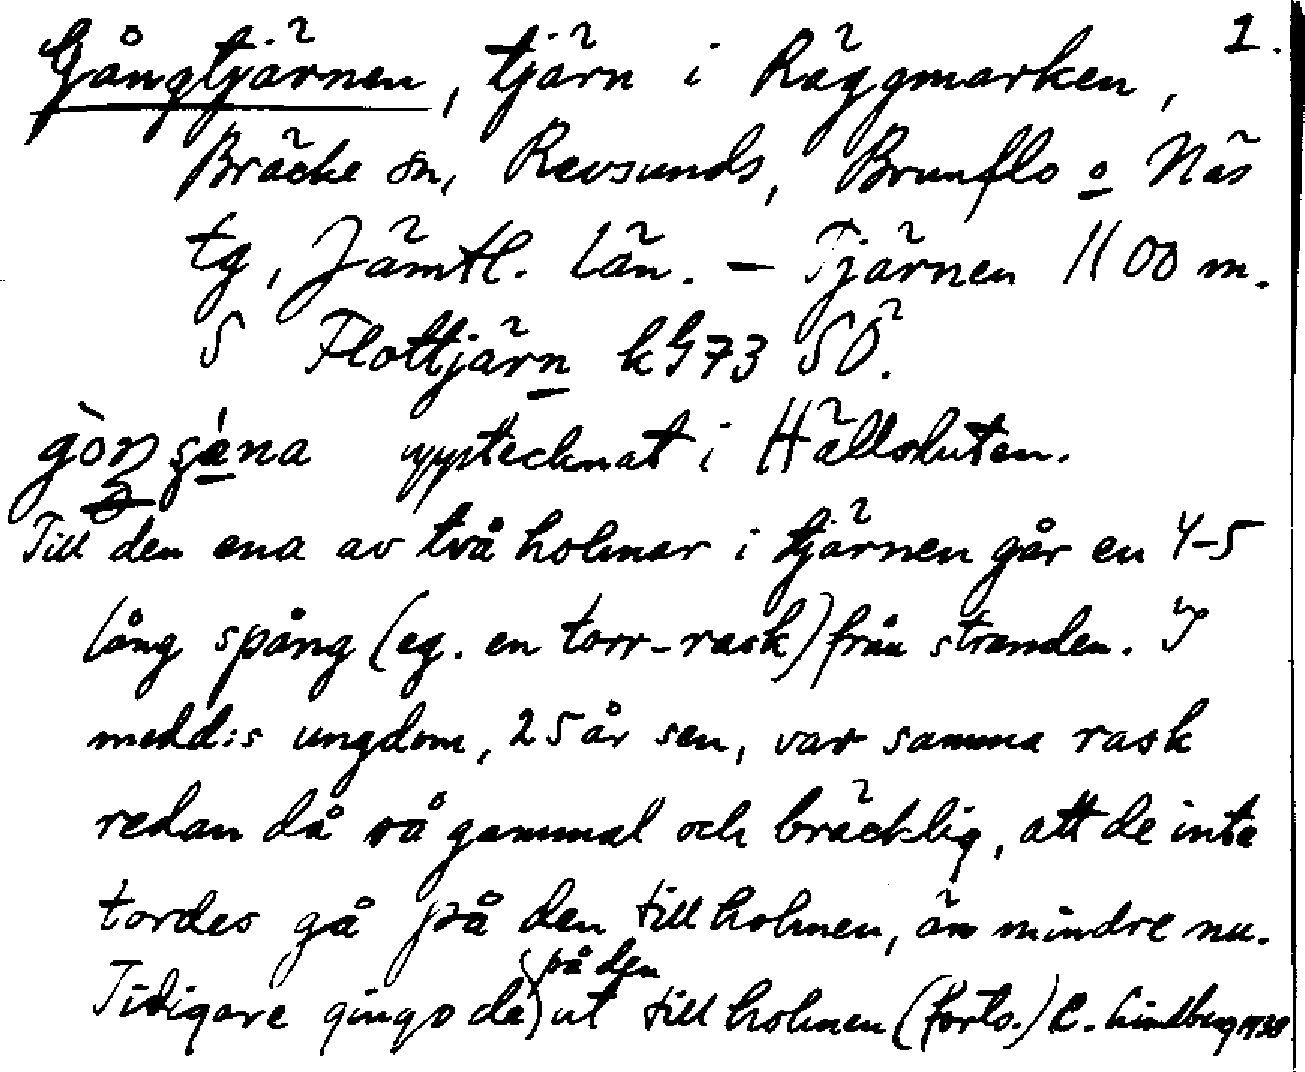 1.
Gångtjärnen, tjärn i Räggmarken,
Bräcke sn, Revsunds, Brunflo o Näs
tg, Jämtl. län. – Tjärnen 1100 m.
S Flottjärn kG73 SÖ.
upptecknat i Hällsluten.
Till den ena av två holmar i tjärnen går en 4-5
lång spång (eg. en torr-rask) från stranden. I
medd:s ungdom, 25 år sen, var samma rask
redan då så gammal och bräcklig, att de inte
tordes gå på den till holmen, än mindre nu.
på den
Tidigare gingo de) ut till holmen (forts.) C. Lindberg